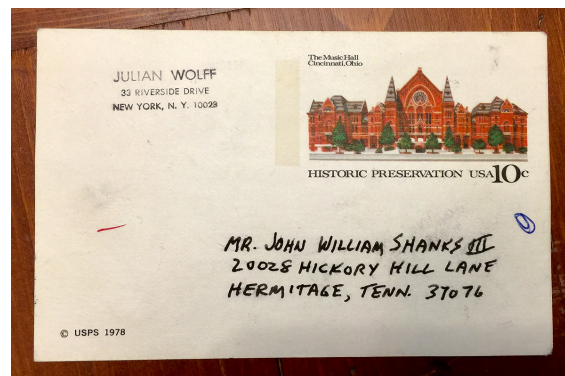 JULIAN WOLFF
33 RIVERSIDE DRIVE
NEW YORK, N. Y. 10023
The Music Hall
Cincinnati, Ohio
HISTORIC PRESERVATION USA 10c
MR. JOHN WILLIAM SHANKS III
20028 HICKORY HILL LANE
HERMITAGE, TENN. 37076
© USPS 1978